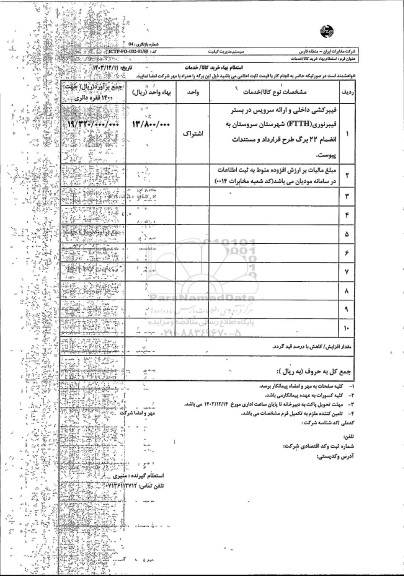 شرکت مخابرات ایران – منطقه فارس
سیستم مدیریت کیفیت
شماره بازنگری: 04
عنوان فرم: استعلام بهاء خرید کالا/خدمات
استعلام بهاء خرید کالا/ خدمات
تاریخ: ۱۴۰۳/۱۲/۱۱
خواهشمند است در صورتیکه حاضر به انجام کار با قیمت ثابت اعلامی می باشید ذیل این برگه را همراه با مهر شرکت امضا نمایید.
ردیف
مشخصات نوع کالا/خدمات
واحد
بهاء واحد (ریال)
جمع برآورد(ریال) جهت ۱۴۰۰ فقره دائری
۱
فیبرکشی داخلی و ارائه سرویس در بستر
فیبرنوری(FTTH) شهرستان سروستان به
انضمام ۲۲ برگ طرح قرارداد و مستندات
پیوست.
اشتراک
۱۳/۸۰۰/۰۰۰
۱۹/۳۲۰/۰۰۰/۰۰۰
۲
مبلغ مالیات بر ارزش افزوده منوط به ثبت اطلاعات
در سامانه مودیان می باشد(کد شعبه مخابرات ۰۰۱۴)
۳
۴
۵
۶
۷
۸
۹
۱۰
ParsNamadData
پایگاه اطلاع رسانی مناقصه و مزایده
۰۲۱-۸۸۳۴۹۶۷۰-۵
مقدار افزایش/ کاهش با درصد قید گردد.
جمع کل به حروف (به ریال ):
۱- کلیه صفحات به مهر و امضاء پیمانکار برسد.
۲- کلیه کسورات به عهده پیمانکارمی باشد.
۳- مهلت تحویل پاکت به دبیرخانه تا پایان ساعت اداری مورخ ۱۴۰۳/۱۲/۱۴ می باشد.
۴- تامین کننده ملزم به تکمیل فرم مشخصات می باشد.
مهر و امضا شرکت
کدملی /کد شناسه شرکت:
تلفن:
شماره ثبت وکد اقتصادی شرکت:
آدرس وکدپستی:
استعلام گیرنده : منیری
تلفن تماس: ۰۷۱۳۶۱۱۳۷۱۲